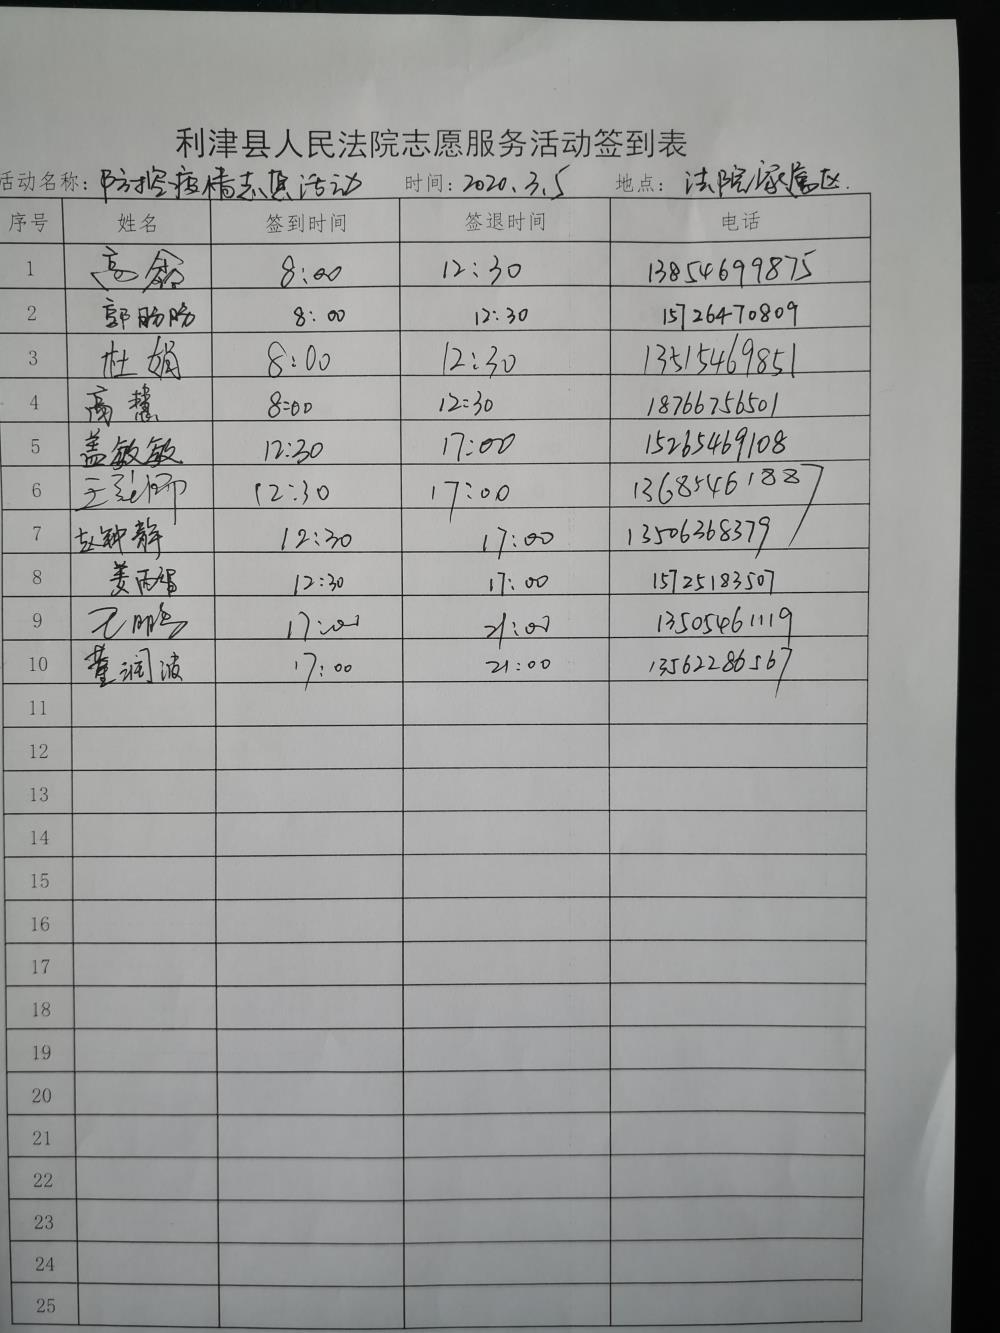 利津县人民法院志愿服务活动签到表
活动名称：防控疫情志愿活动 时间：2020.3.5 地点：法院家属区.
序号 姓名 签到时间 签退时间 电话
1 高鑫 8:00 12:30 13854699875
2 郭盼盼 8:00 12:30 15726470809
3 杜娟 8:00 12:30 13515469851
4 高慧 8:00 12:30 18766756501
5 盖敏敏 12:30 17:00 15265469108
6 王 12:30 17:00 13685461887
7 赵钟静 12:30 17:00 13506368379
8 姜丙 12:30 17:00 15725183507
9 鹏 17:00 21:00 13505461119
10 董润波 17:00 21:00 13562286567
11
12
13
14
15
16
17
18
19
20
21
22
23
24
25